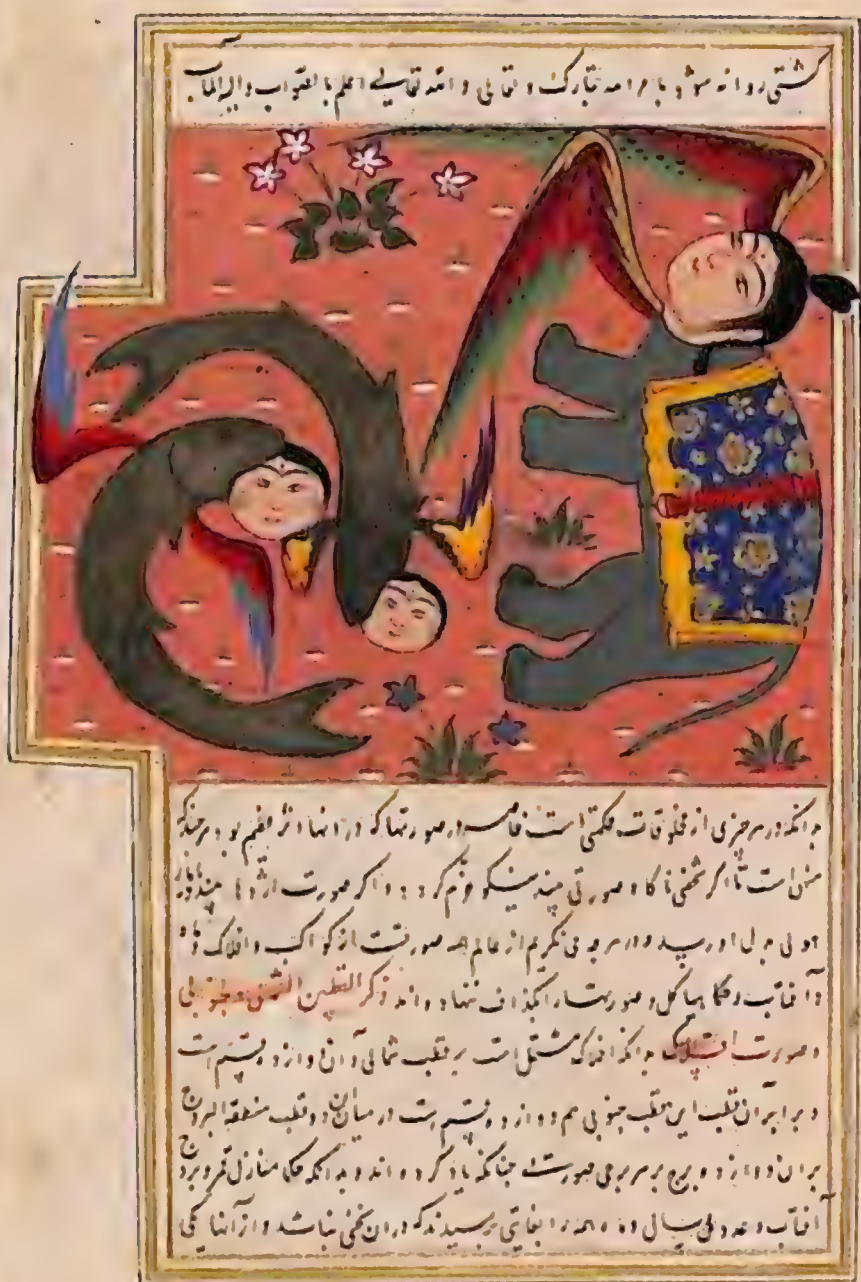 کشتی روانه شود با مر الله تبارک و تعالی و الله تعالی اعلم بالصواب و الیه المآب
بدانکه در هر چیزی از مخلوقات حکمتی است خاصه در صورتها که در آنها اثر عظیم بود هر چند که
است تا اگر شخصی ناگاه صورتی بیند نیکو خرم گردد و اگر صورت اژدها بیند
هولی در دل او رسید و در هر چه می نگریم از عالم همه صورتست از کواکب و افلاک و ماه
و آفتاب و حکما هیاکل و صورتها را بگذاف ننهاده اند ذکر القطبین الشمالی و جنوبی
و صورت افلاک بدانکه افلاک مشتمل است بر قطب شمالی و آن دوازده قسم است
و برابر آن قطب این قطب جنوبی هم دوازده قسم است در میان دو قطب منطقة البروج
بر آن دوازده برج بر هر برجی صورتی چنانکه یاد کرده اند و بدانکه حکما منازل قمر و بروج
آفتاب و عدد لیال و همه را بغایتی رسیدند که در آن کجی نباشد و از آنها یکی